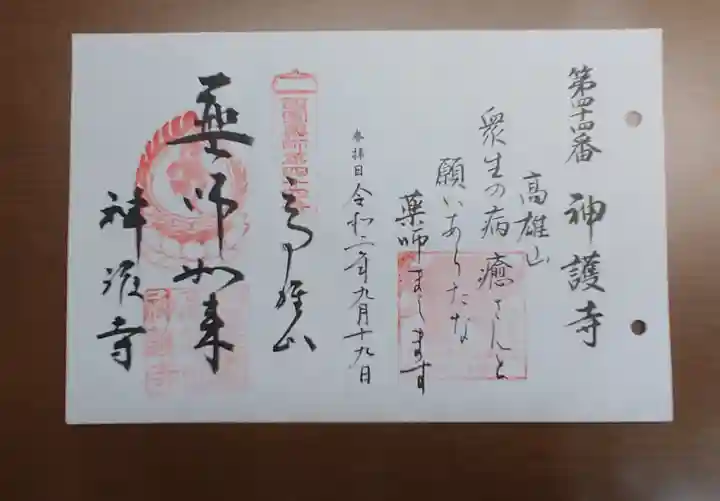 第四十四番 神護寺
高雄山
衆生の病癒さんと
願いあらたな
薬師まします
参拝日 令和二年九月十九日
高雄山
薬師如来
神護寺